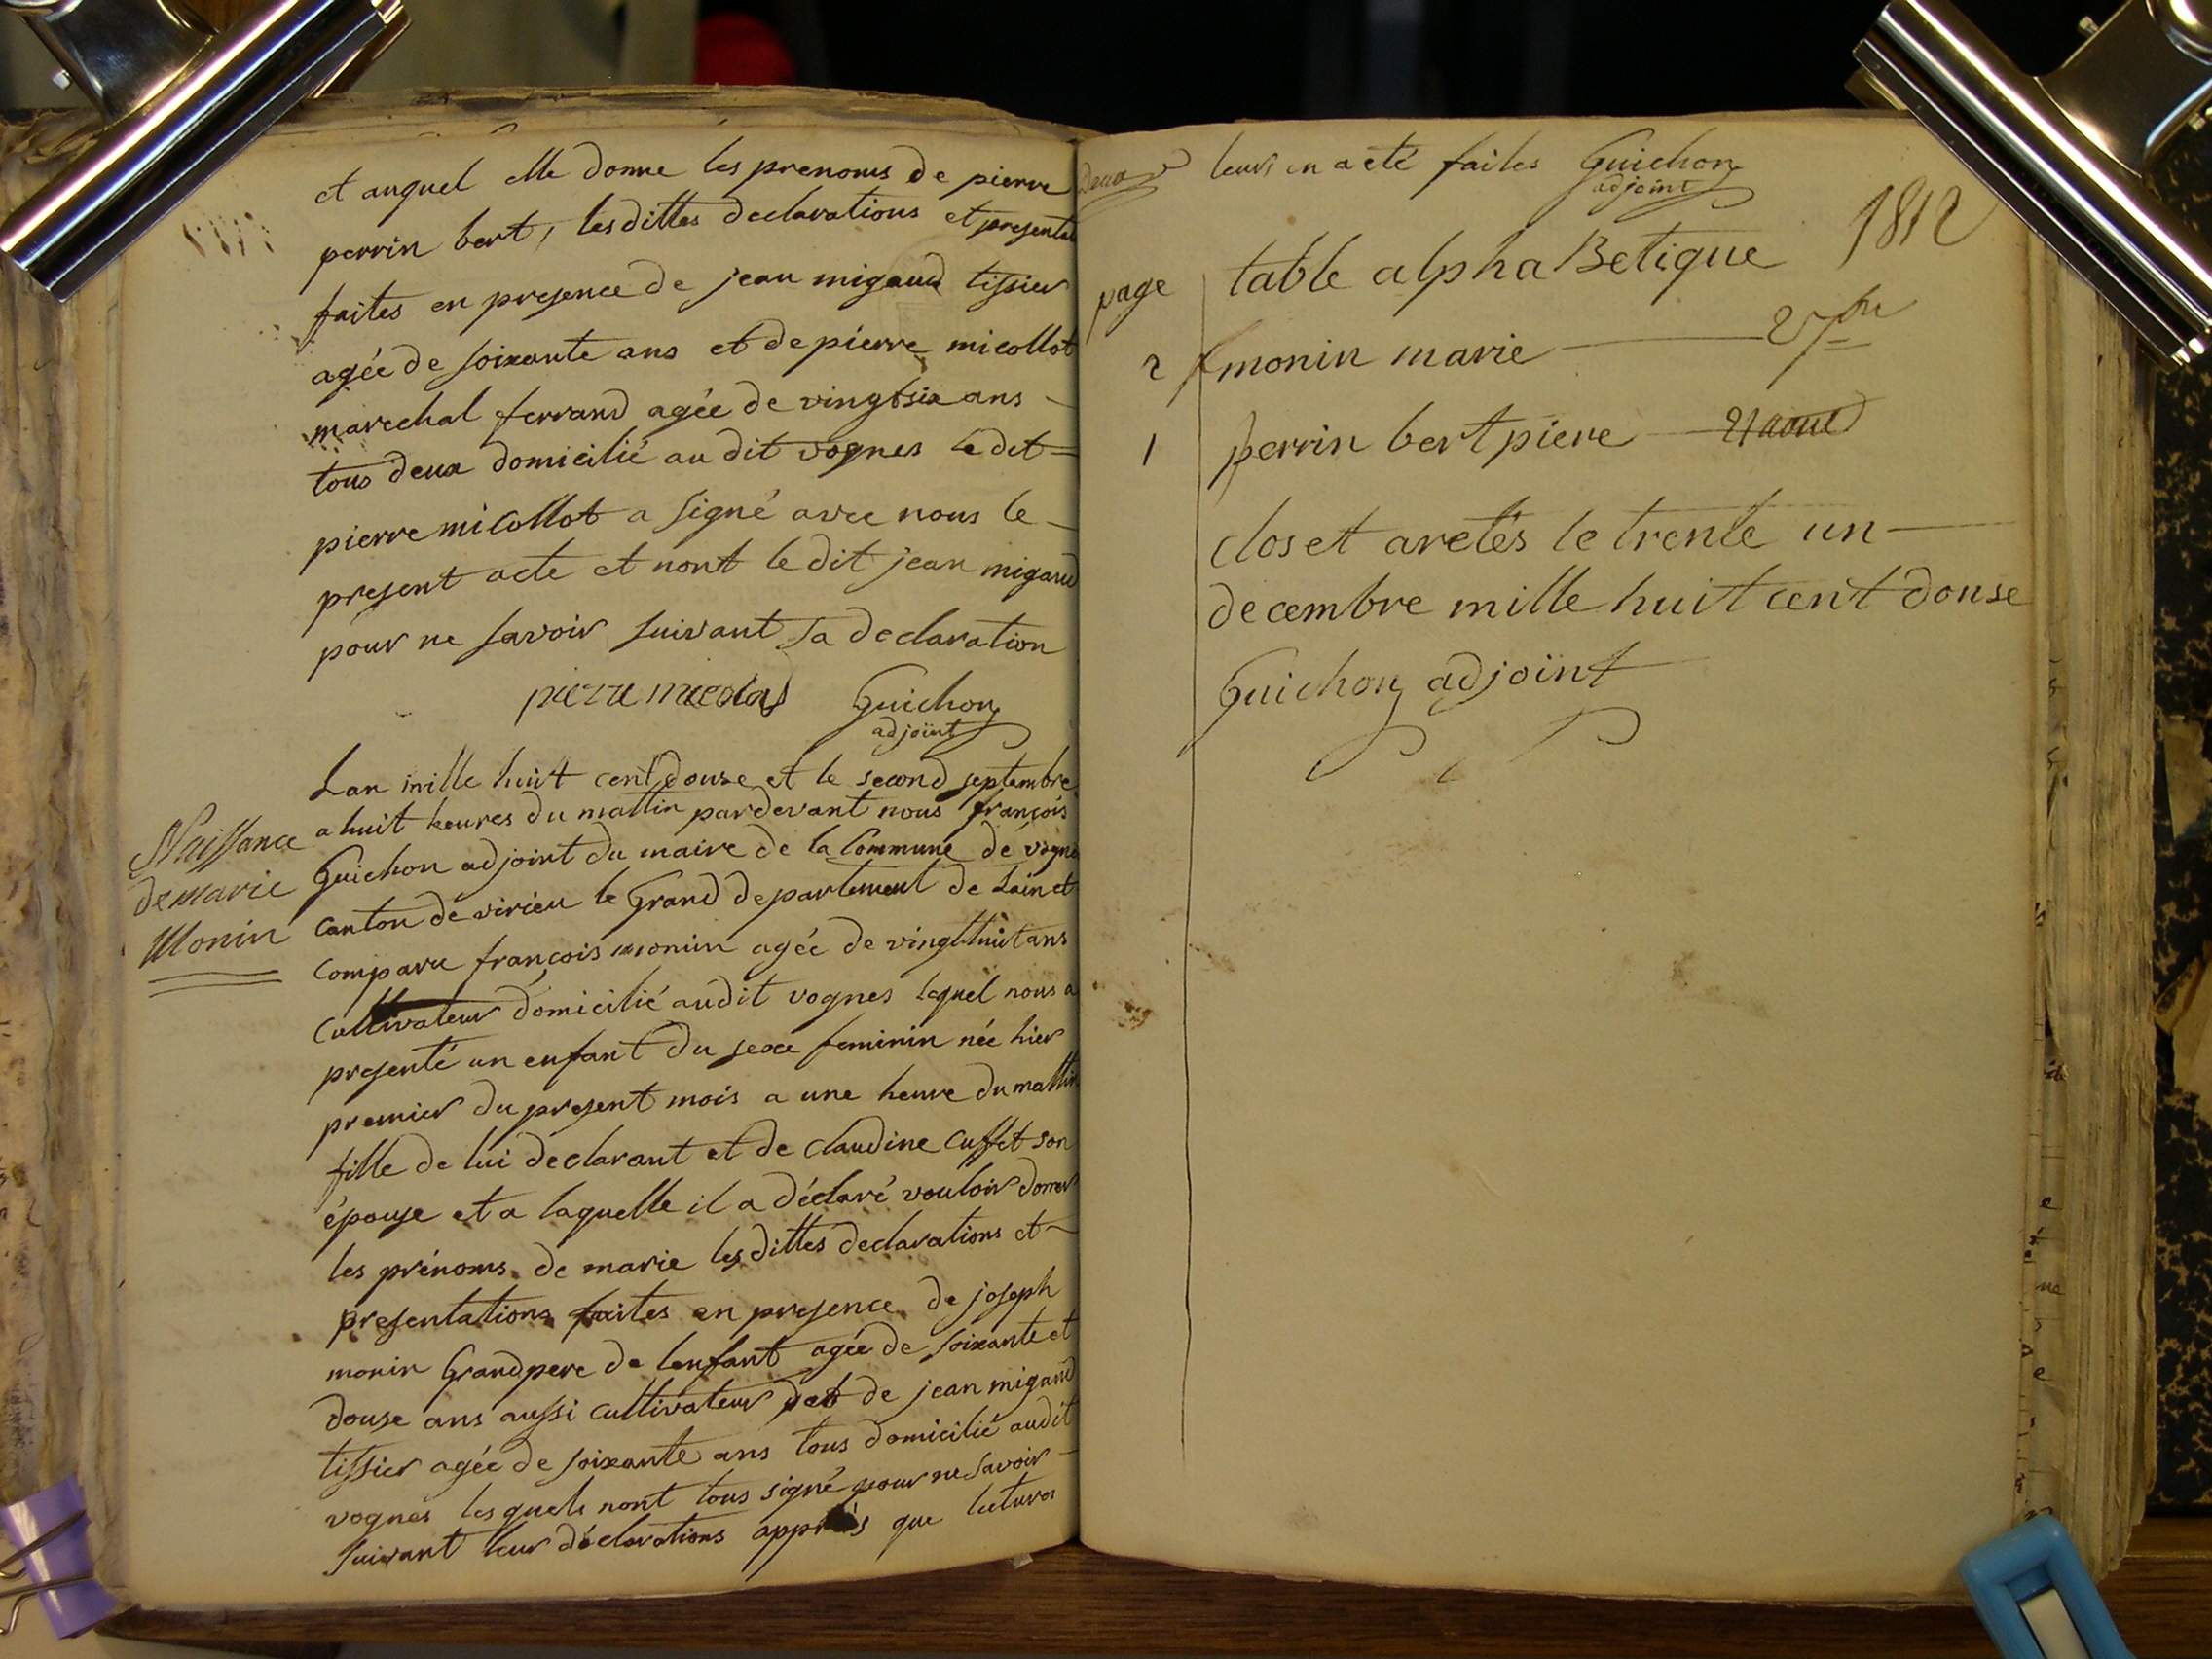 et auquel elle donne les prenoms de pierre
perrin bert, les dittes declarations et presentat
faites en presence de jean migaud tissier
agée de soixante ans et de pierre micollot
marechal ferrand agée de vingt six ans
tous deux domicilié au dit vognes le dit =
pierre micollot a signé avec nous le
present acte et nont le dit jean migaud
pour ne savoir suivant sa declaration
pierre micolas Guichon
adjoint
Lan mille huit cent douse et le second septembre
a huit heures du mattin pardevant nous françois
Guichon adjoint du maire de la Commune de vogne
Canton de virieu le Grand departement de Lain et
Comparu françois monin agée de vingt huit ans
Cultivateur domicilié audit vognes lequel nous a
presenté un enfant du sexe feminin née hier
premier du present mois a une heure du mattin
fille de lui declarant et de claudine Cuffet son
épouse et a laquelle il a déclaré vouloir donner
les prénoms de marie les dittes declarations et
presentations faites en presence de joseph
monin Grandpere de lenfant agée de soixante et
douse ans aussi cultivateur et de jean migaud
tissier agée de soixante ans tous domicilié audit
vognes les quels nont tous signé pour ne savoir
suivant leur déclarations apprés que lectures
Naissance
de marie
Monin
leurs en a eté faites Guichon
adjoint
1812
table alphaBetique
page
2 monin marie 2 7bre
1 perrin bert piere 21 aout
clos et aretés le trente un
decembre mille huit cent douse
Guichon adjoint